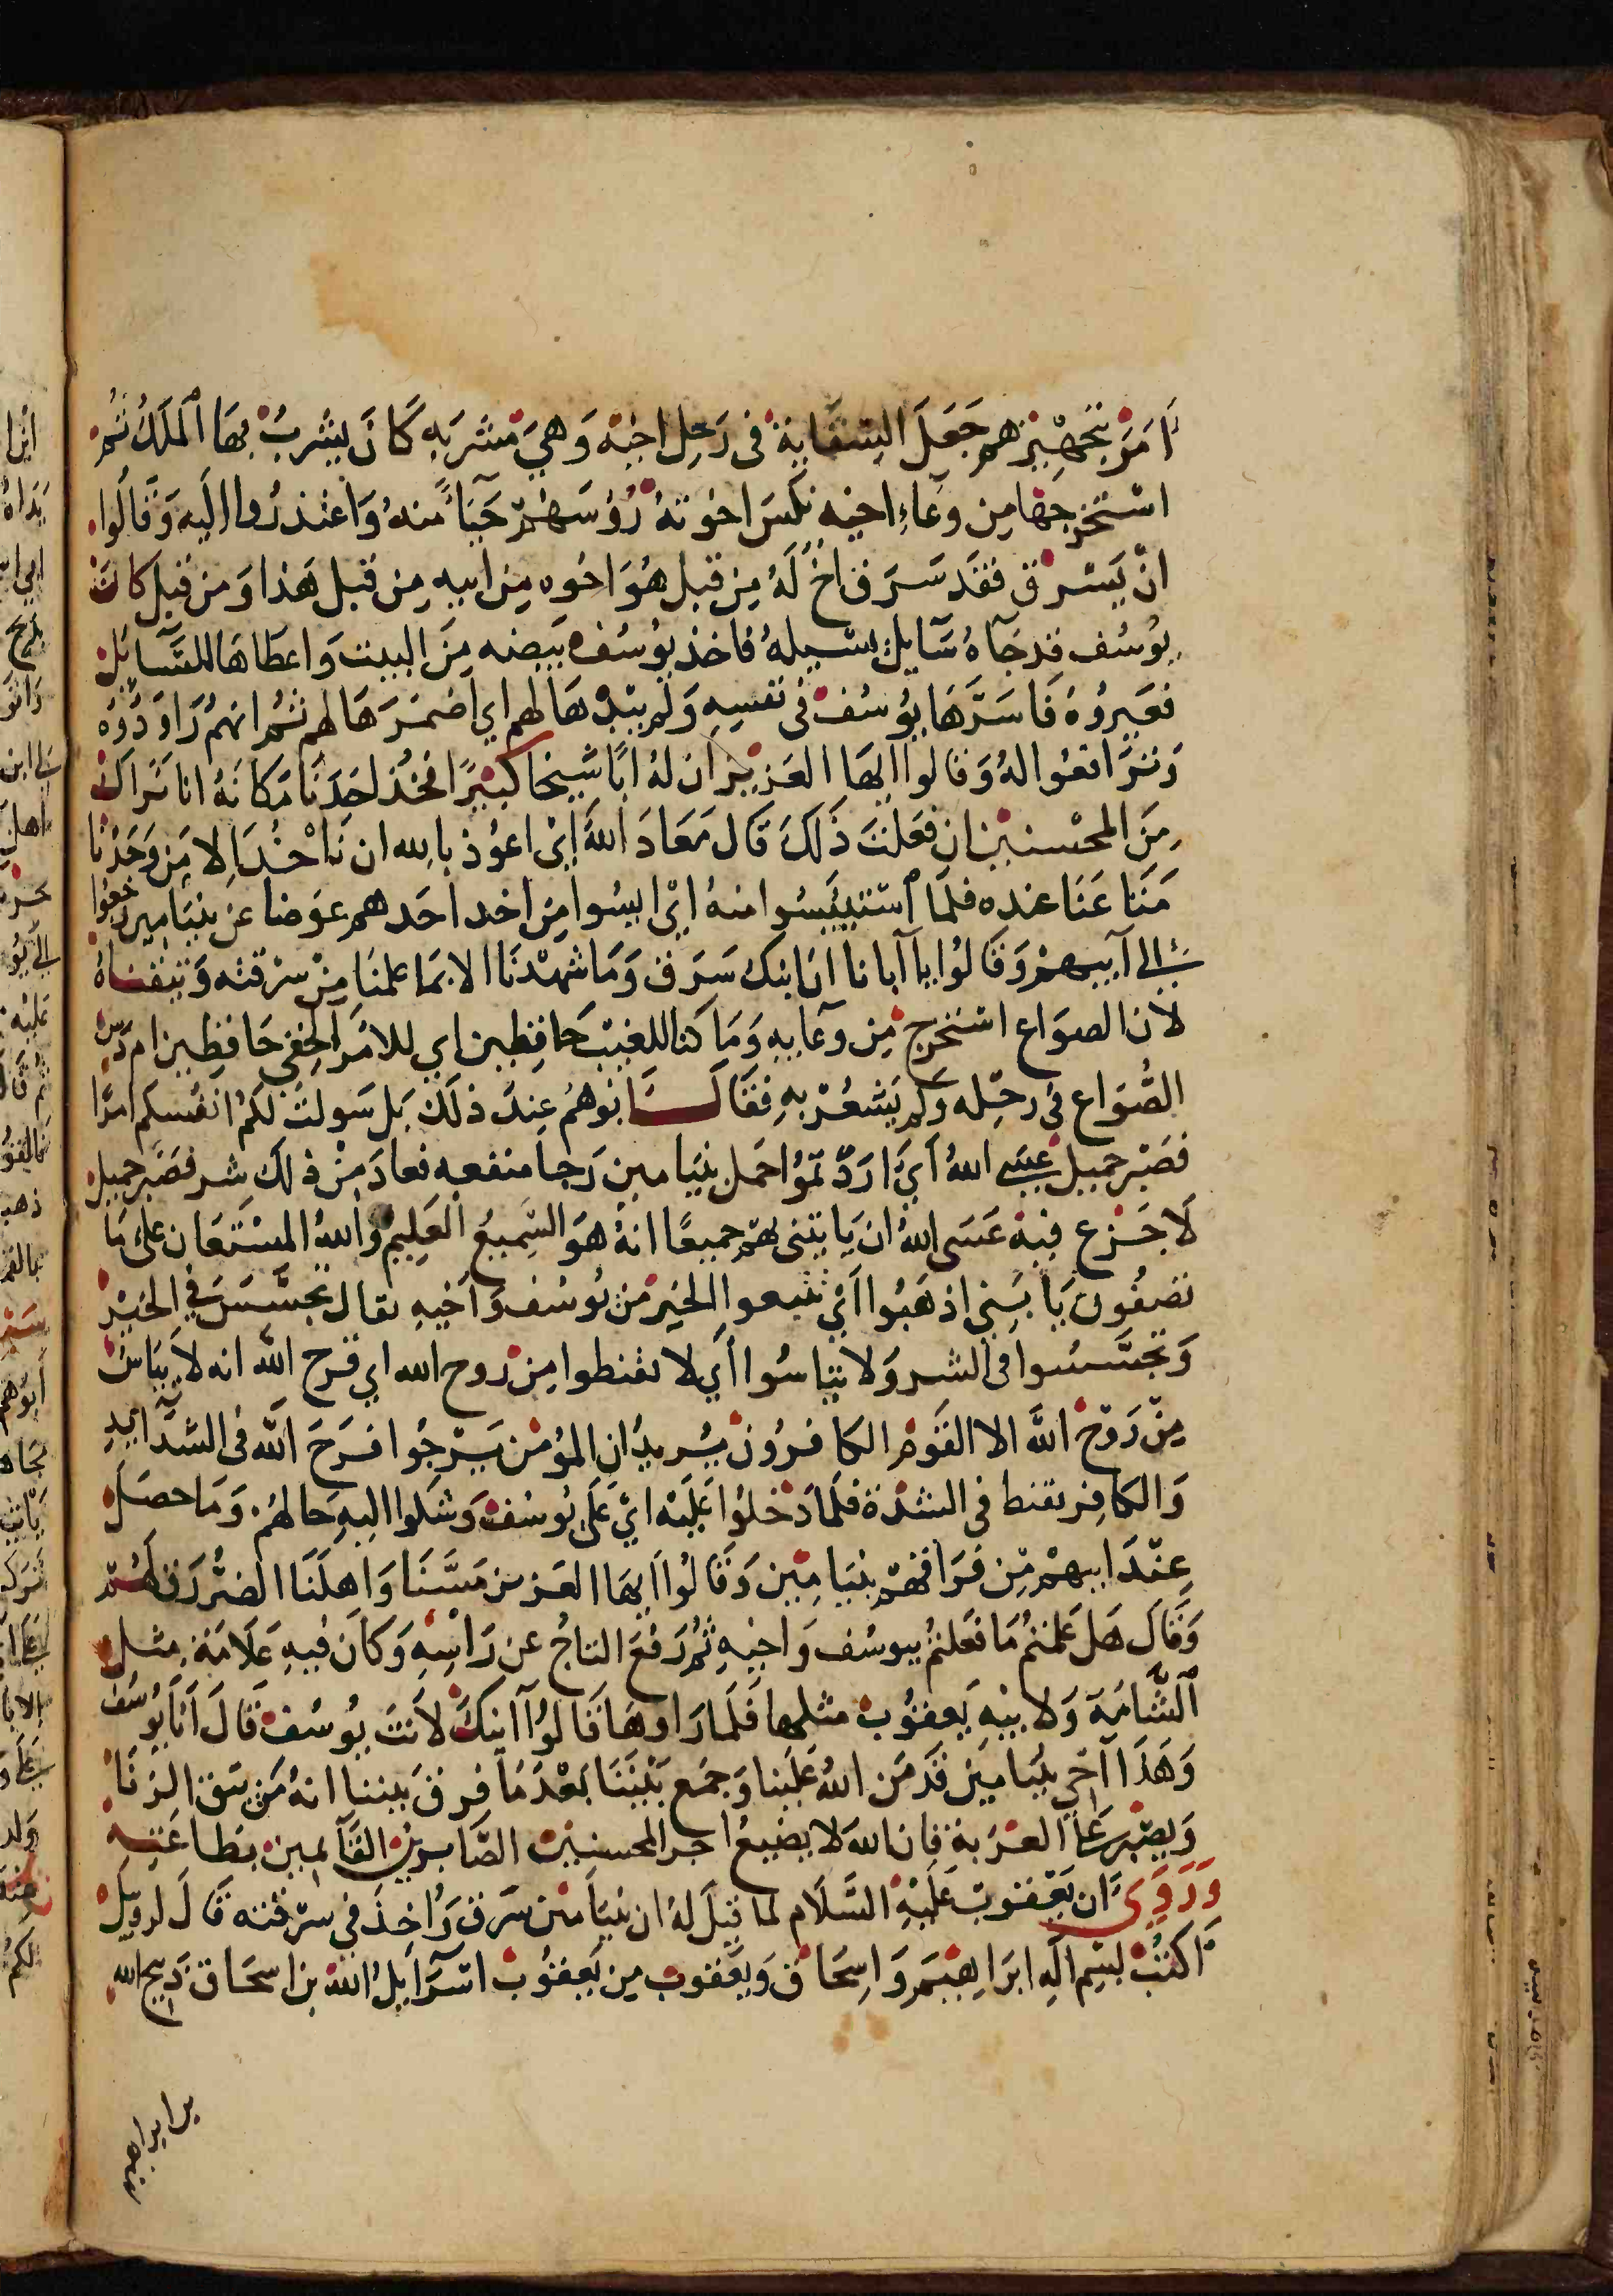 اَمَرَ بتجهيزهم جَعَلَ السِقَاية في رَحِل اخيْه وَهيَ مشرَبه كَانَ يشربُ بهَا الملكُ ثم
استخرجهَا مِن وعَاءِ اخيه نكسَ اخوتهُ رُؤسَهُم حَيَاءً منهُ وَاعتذرُوا اليه وَقالُوا
انْ يَسْرق فقدَ سَرَق اخٌ لهُ مِن قبل هُوَ اخوه مِن ابيهِ مِن قبل هَذا وَمن قبل كانَ
يوُسُف قد جَآهُ سَآيلٌ يسَيلهُ فاخذ يوُسُف بَيضه مِنَ البيت وَاعطاهَا للسَّآئل
فعَيروُهُ فَاسَرَّهَا يوُسُف في نفسِهِ وَلَم يبْدهَا لهم اي اَضمَرَهَا لهم ثم انهمُ رَاوَدُوهُ
وَترَافعُوا لهُ وَقالوا اايهَا العَزيز ان لهُ ابًا شيخا كبيرًا فخُذ احَدَنَا مَكانهُ انا نَراك
مِنَ المحْسنين ان فعَلتَ ذَلكَ قَال مَعَادَ اللهَ اىْ اعوُذ باِلله ان نَاْخُدَ اِلا مَن وَجَدْنَا
مَتَاعَنَا عنده فلمَا استيئَسُوا منهُ ايْ ايسُوا مِن اخد احَدهم عوَضا عَن بنيَامِين رجعُوا
الى آبيهمْ وَقَالوُا يا آبانا ان ابنك سَرَق وَمَا شهدْنَا الا بمَا علمنَا مِنْ سرْقته وَتيقناهُ
لان الصوَاع استخرج مِن وعَايهِ وَمَا كنا للغيْب حَافِظين اي للامْر الخفي حَافِظِين ام دسَ
الصُّوَاع في رحْله وَلَم يَشعُرْ بهِ فقَالَ ابُوهُم عِندَ ذلَكَ بَل سَولتْ لكمُ انفُسكم امرًا
فصَبْر جميل عَسَى اللهُ اَيْ ارَدْتموُا حَمل بنيَامين رَجا منفعه فعادَ مِنْ ذلكَ شر فصَبر جميل
لاَ جَزع فيه عَسَى اللهُ ان يَا يتنى بهمْ جميعًا انهُ هوَ السَّميعُ العَلِيم وَاللهُ المسْتعَان على مَا
تصفُون يَا بَنِي اذهَبُوا اَيْ تتبعوا الخير من يُوسُف وَاَخيهِ يقال تحسَّسَ في الخيْر
وَتجسَّسُوا في الشر وَلا تيَاسُوا اَي لا تقنطوا مِن روح الله اي فرح الله انه لاَ يَيَاسُ
مِنْ رَوْح اللهَ الا القوم الكافرُون يُريدُ ان المؤمن يَرْجُوا فَرَحَ اللهَ في الشدَايدِ
وَالكافِر يقنط في الشدَة فلَمَا دَخلوُا عَليْه ايْ عَلَى يوُسُف وَشكوا اليهِ حَالهُم وَمَا حصَل
عِنْدَ ابيهمْ مِن فرَاقهمْ بنيَامِين وَقَالُوا اَايهَا العَزيز مَسَّنَا وَاهلَنَا الضرُّ رَق لهُم
وَقَال هَل عَلمتمُ مَا فعَلتمُ بيوسُف وَاخيهِ ثمُ رَفعَ التاجُ عَن رَاسِهِ وَكاَن فيهِ عَلَامَة مثل
اَلشَّامَة وَلابيْهِ يَعقوُب مثلهَا فَلَمَا رَاوهَا قَالوُا اَانكَ لاَنتَ يوُسُف قَالَ اَنَا يوُسف
وَهَذَا اَخي بنيَامين قدَ مَن اللهُ عَلَينا وَجمَع بَيْننَا بَعْدَ مَا فرقَ بيننا انهُ مَن يتق الزنَا
وَيصْبر عَلى العزبة فان الله لا يضيع اجر المحسنين الصَّابرين القآئمين بطاعَته
وَرَوَىَ اَن يَعْقوبَ عَليْهِ السَّلَام لما قيلَ لهُ ان بنيَامين سَرق وَاُخذَ في سرْقته قَالَ لروبيل
اَكتبْ بسْم الَه ابرَاهِيمَ وَاِسحَاقْ وَيَعقوب مِن يَعقوُب اسْرَآيلُ الله بن اسحَاق ذبيح الله
بن ابراهيم